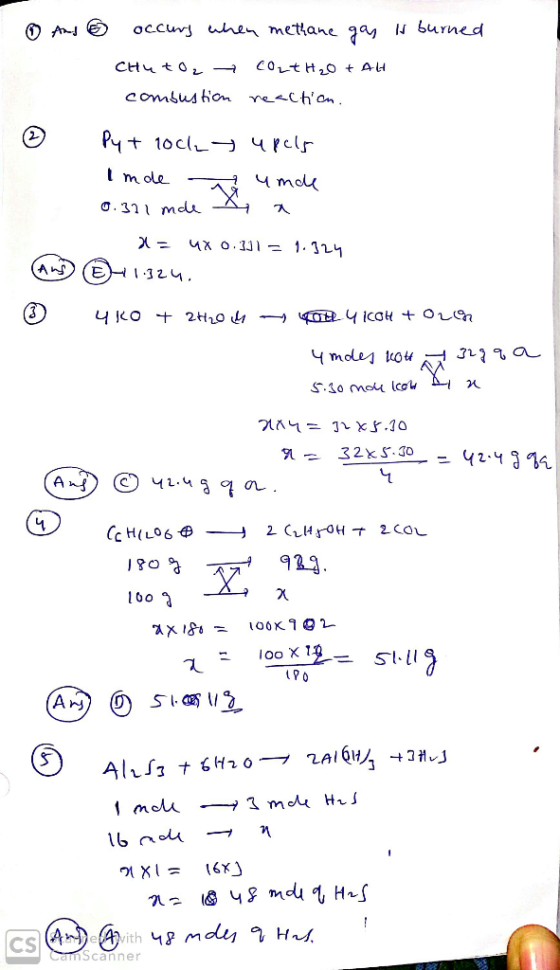 ① Ans Ⓔ occurs when methane gas is burned
CH4 + O2 → CO2 + H2O + ΔH
combustion reaction.
②
P4 + 10Cl2 → 4PCl5
1 mole → 4 mole
0.331 mole → x
x = 4 x 0.331 = 1.324
Ans Ⓔ → 1.324.
③
4KO + 2H2O → 4KOH + O2
4 moles KOH → 32g q O2
5.30 mole KOH → x
x x 4 = 32 x 5.30
x = 32 x 5.30 / 4 = 42.4 g
Ans Ⓒ 42.4 g q O2.
④
C6H12O6 → 2 C2H5OH + 2CO2
180 g → 92g.
100 g → x
x x 180 = 100 x 92
x = 100 x 92 / 180 = 51.11 g
Ans Ⓓ 51.11g
⑤
Al2S3 + 6H2O → 2Al(OH)3 + 3H2S
1 mole → 3 mole H2S
16 mole → x
x x 1 = 16 x 3
x = 48 mole of H2S
Ans Ⓐ 48 moles of H2S.
CS Scanned with
CamScanner